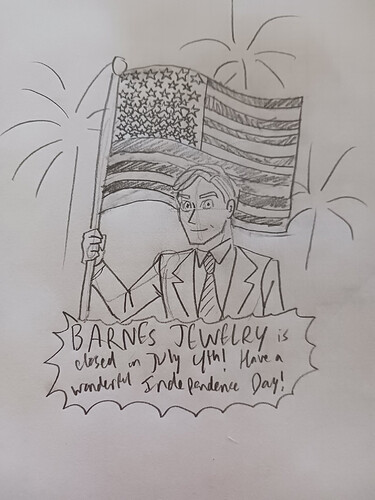 BARNES JEWELRY is
closed on July 4th! Have a
wonderful Independence Day!